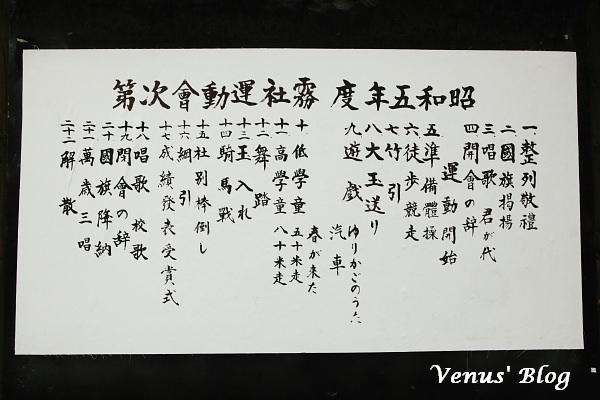 昭和五年度 霧社運動會次第
一、整列敬禮
二、國旗掲揚
三唱歌 君が代
四開會の辞
運動開始
五準備體操
六徒歩競走
七竹引
八大玉送り
九遊戯 汽車
ゆりかごのうた
春が来た
十低學童 五十米走
十一高學童 八十米走
十二舞踏
十三玉入れ
十四騎馬戰
十五社別棒倒し
十六綱引
十七成績發表受賞式
十八唱歌 校歌
十九閉會の辞
二十國旗降納
二十一萬歳三唱
二十二解散
Venus' Blog